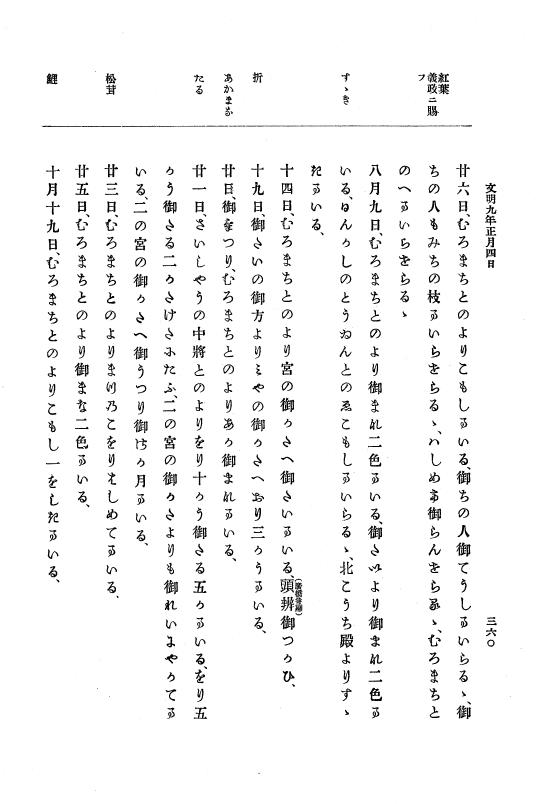 文明九年正月四日
三六〇
紅葉
義政ニ賜
フ
廿六日、むろまちとのよりこもしまいる、御ちの人御てうしまいらるゝ、御
ちの人もみちの枝まいらせらるゝ、ハしめて御らんせらるゝ、むろまちと
のへまいらせらるゝ
八月九日、むろまちとのより御まな二色まいる、御さいより御まな二色ま
すゝき
いる、のとうゐんとのゑこもしまいらるゝ、北こうち殿よりすゝ
きまいる、
十四日、むろまちとのより宮の御かたへ御さいまいる、頭辨御つかひ、
折
十九日、御さいの御方よりミやの御かたへおり三かうまいる、
あかまな
廿日、御むろまちとのよりあか御まなまいる、
たる
廿一日、さいしやうの中將とのよりをり十かう御たる五かまいる、をり五
かう御たる二か二の宮の御かたよりも御れいにやかてま
いる、二の宮の御かたへ御うつり御月まいる、
松茸
廿三日、むろまちとのよりまつのこをりはしめてまいる、
廿五日、むろまちとのより御まな二色まいる、
鯉
十月十九日、むろまちとのよりこもし一をしきまいる、